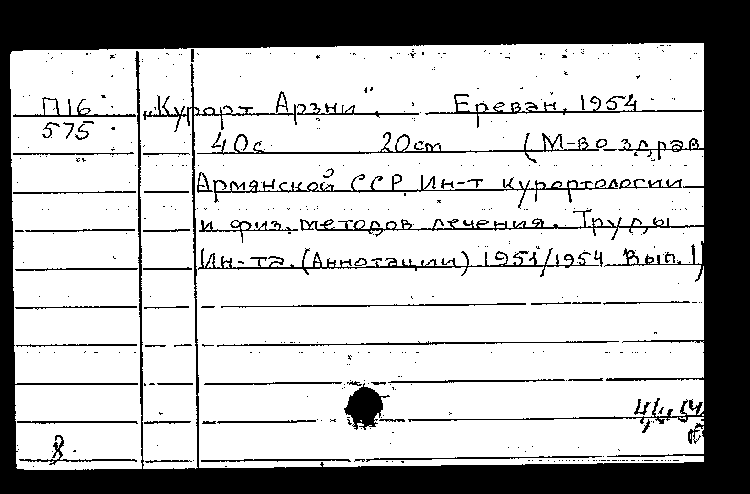 П16 „Курорт Арзни“. Ереван, 1954
575 40с 20cm (М-во здрав
Армянской ССР Ин-т курортологии
и физ. методов лечения. Труды
Ин-та. (Аннотации) 1951/1954 Вып. 1)
8.